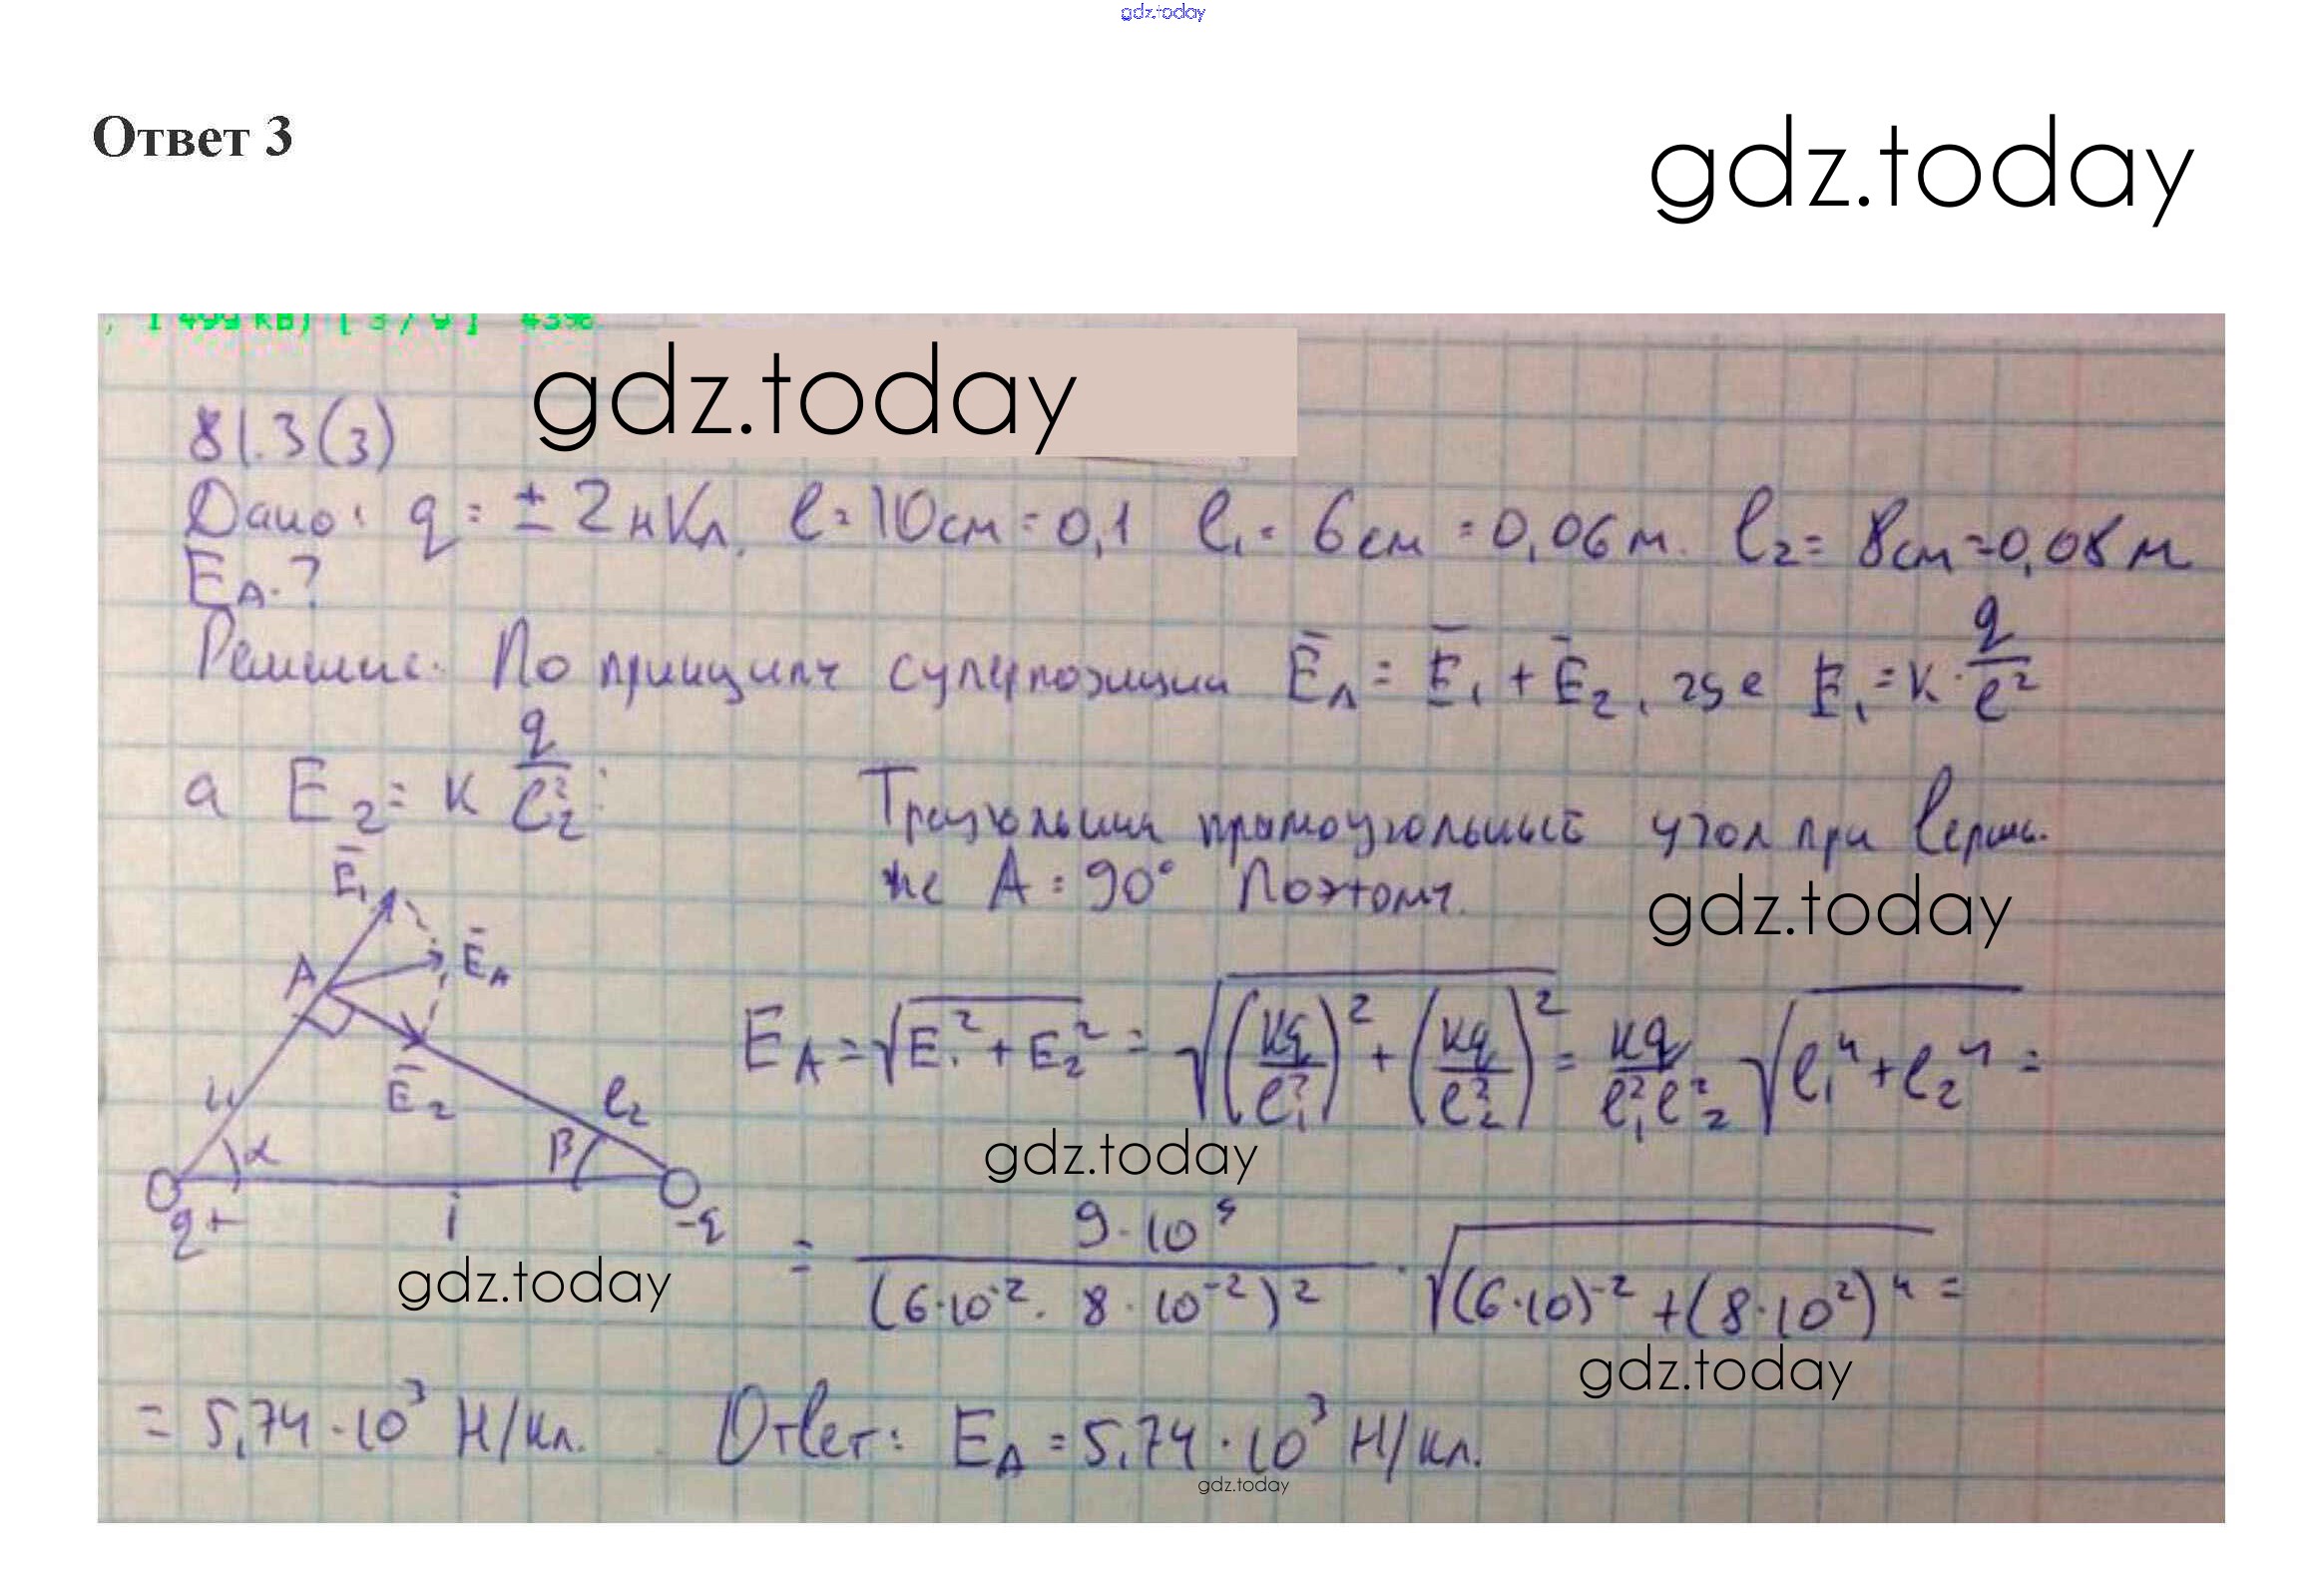 gdz.today
Ответ 3
gdz.today
, 1 499 KB) [ 3 / 9 ] 43%
gdz.today
81.3(3)
Дано: q = ± 2 нКл. l = 10 см = 0,1 l₁ = 6 см = 0,06 м. l₂ = 8 см = 0,08 м
E_A - ?
Решение. По принципу суперпозиции Ē_A = Ē₁ + Ē₂, где E₁ = k · q/l²
а E₂ = k q/l₂² :
Треугольник прямоугольный угол при верши-
не A = 90° Поэтому.
gdz.today
Ē₁
A
Ē_A
Ē₂
l₂
α
β
q+
-q
E_A = √(E₁² + E₂²) = √((kq/l₁²)² + (kq/l₂²)²) = kq/(l₁² l₂²) √(l₁⁴ + l₂⁴) =
gdz.today
gdz.today
= 9·10⁹/(6·10⁻² · 8·10⁻²)² · √((6·10)⁻² + (8·10²)⁴) =
gdz.today
= 5,74·10³ Н/Кл. Ответ: E_A = 5,74·10³ Н/Кл.
gdz.today